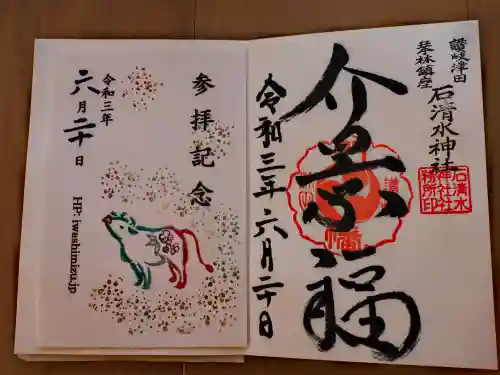 讃岐津田
琴林鎮座
石清水神社
介景福
石清水
神社社
務所印
令和三年六月二十日
参拝記念
令和三年
六月二十日
HP: iwashimizu.jp